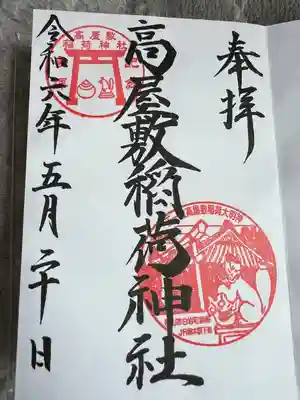 奉拝
高屋敷稲荷神社
令和六年五月二十日
高屋敷
稲荷神社
高屋敷稲荷大明神